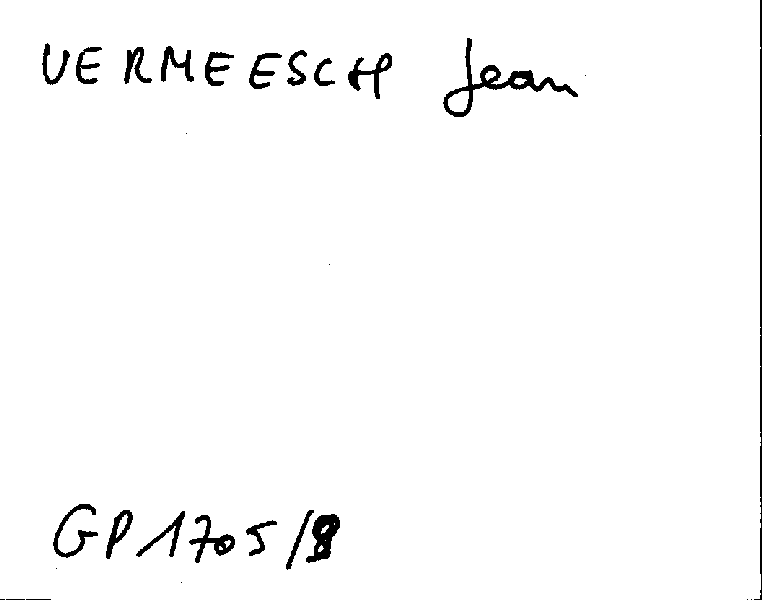 VERMEESCH Jean
GP 1705/8